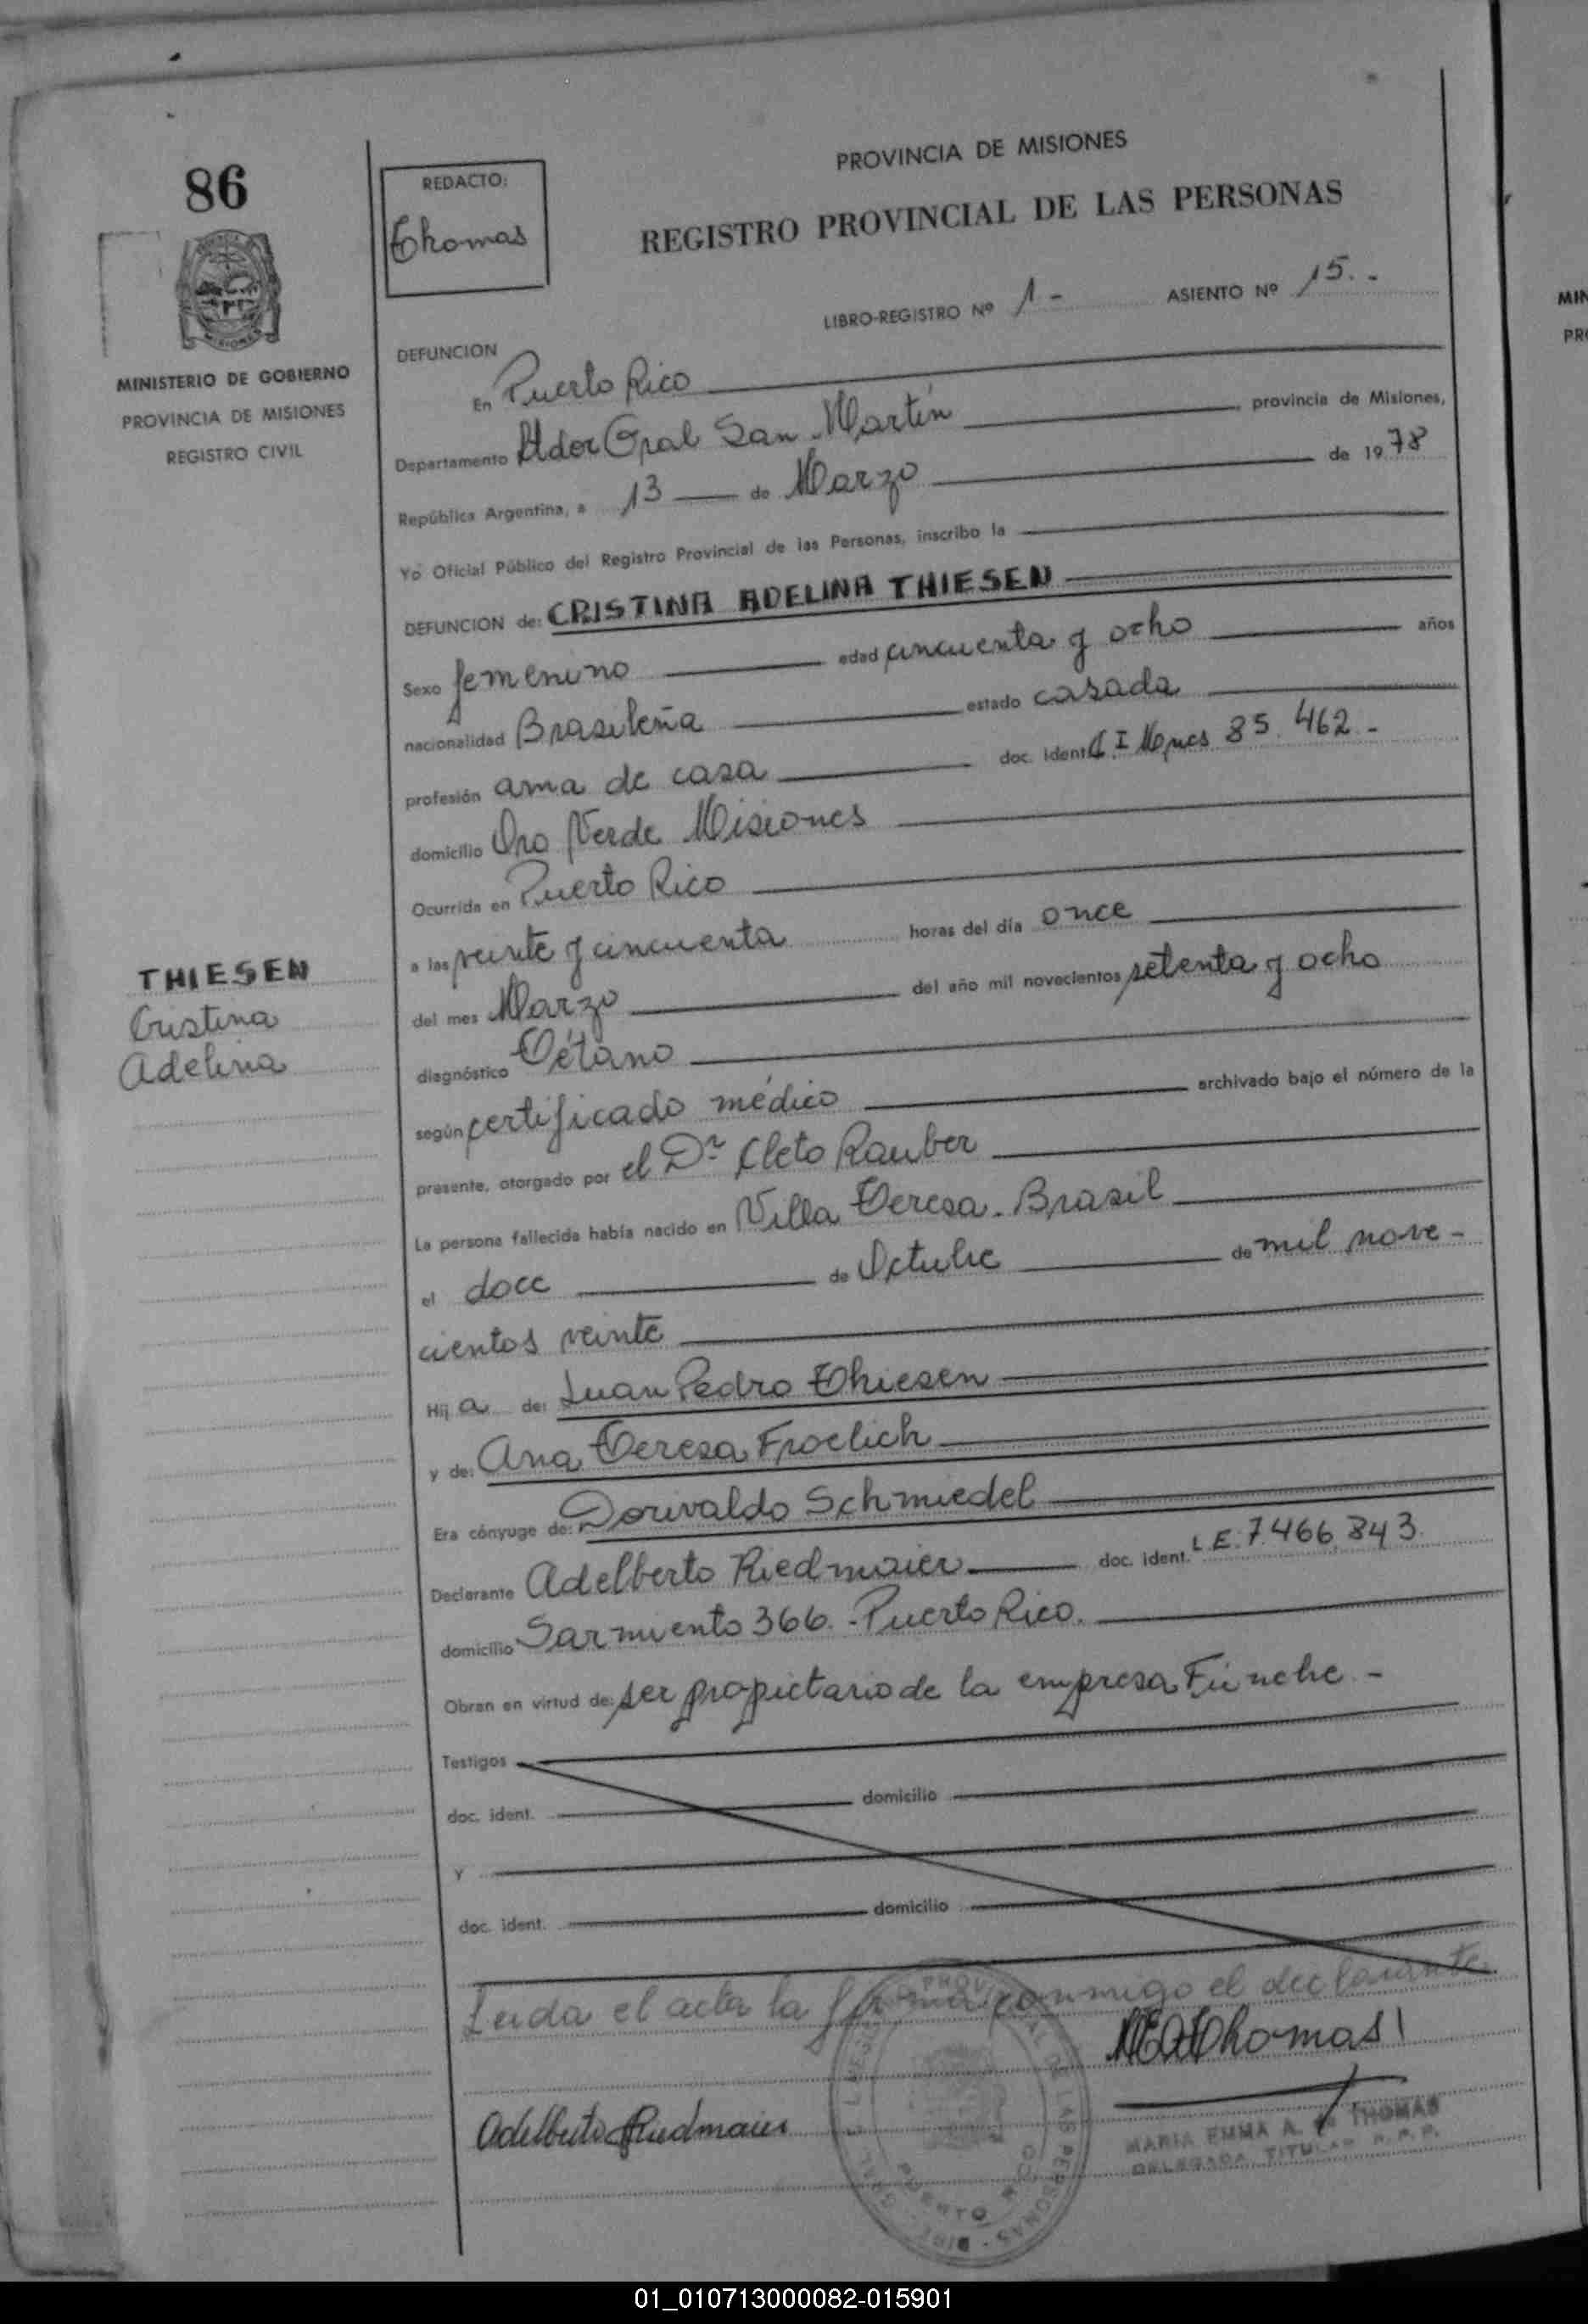 86
REDACTO:
Thomas
PROVINCIA DE MISIONES
REGISTRO PROVINCIAL DE LAS PERSONAS
LIBRO-REGISTRO Nº 1 - ASIENTO Nº 15. -
MINISTERIO DE GOBIERNO
PROVINCIA DE MISIONES
REGISTRO CIVIL
DEFUNCION
En Puerto Rico
Departamento Ldor Gral San Martín provincia de Misiones,
República Argentina, a 13 de Marzo de 1978
Yo Oficial Público del Registro Provincial de las Personas, inscribo la
DEFUNCION de: CRISTINA ADELINA THIESEN
Sexo femenino edad cincuenta y ocho años
nacionalidad Brasileña estado casada
profesión ama de casa doc. ident. C I Mnes 85.462 -
domicilio Oro Verde Misiones
Ocurrida en Puerto Rico
a las veinte y cincuenta horas del día once
del mes Marzo del año mil novecientos setenta y ocho
diagnóstico Tétano
según certificado médico archivado bajo el número de la
presente, otorgado por el Dr Cleto Rauber
La persona fallecida había nacido en Villa Teresa. Brasil
el doce de Octubre de mil nove-
cientos veinte
Hij a de: Juan Pedro Thiesen
y de: Ana Teresa Froelich
Era cónyuge de: Dorivaldo Schmiedel
Declarante Adelberto Riedmaier doc. ident. L E. 7.466.843.
domicilio Sarmiento 366. - Puerto Rico.
Obran en virtud de: ser propietario de la empresa Fúnebre -
Testigos
doc. ident. domicilio
y
doc. ident. domicilio
Leida el acta la firma conmigo el declarante
THIESEN
Cristina
Adelina
Adelberto Riedmaier
Thomas
MARIA EMMA A. de THOMAS
DELEGADA TITULAR R. P. P.
PUERTO RICO
MIN
PRO
01_010713000082-015901